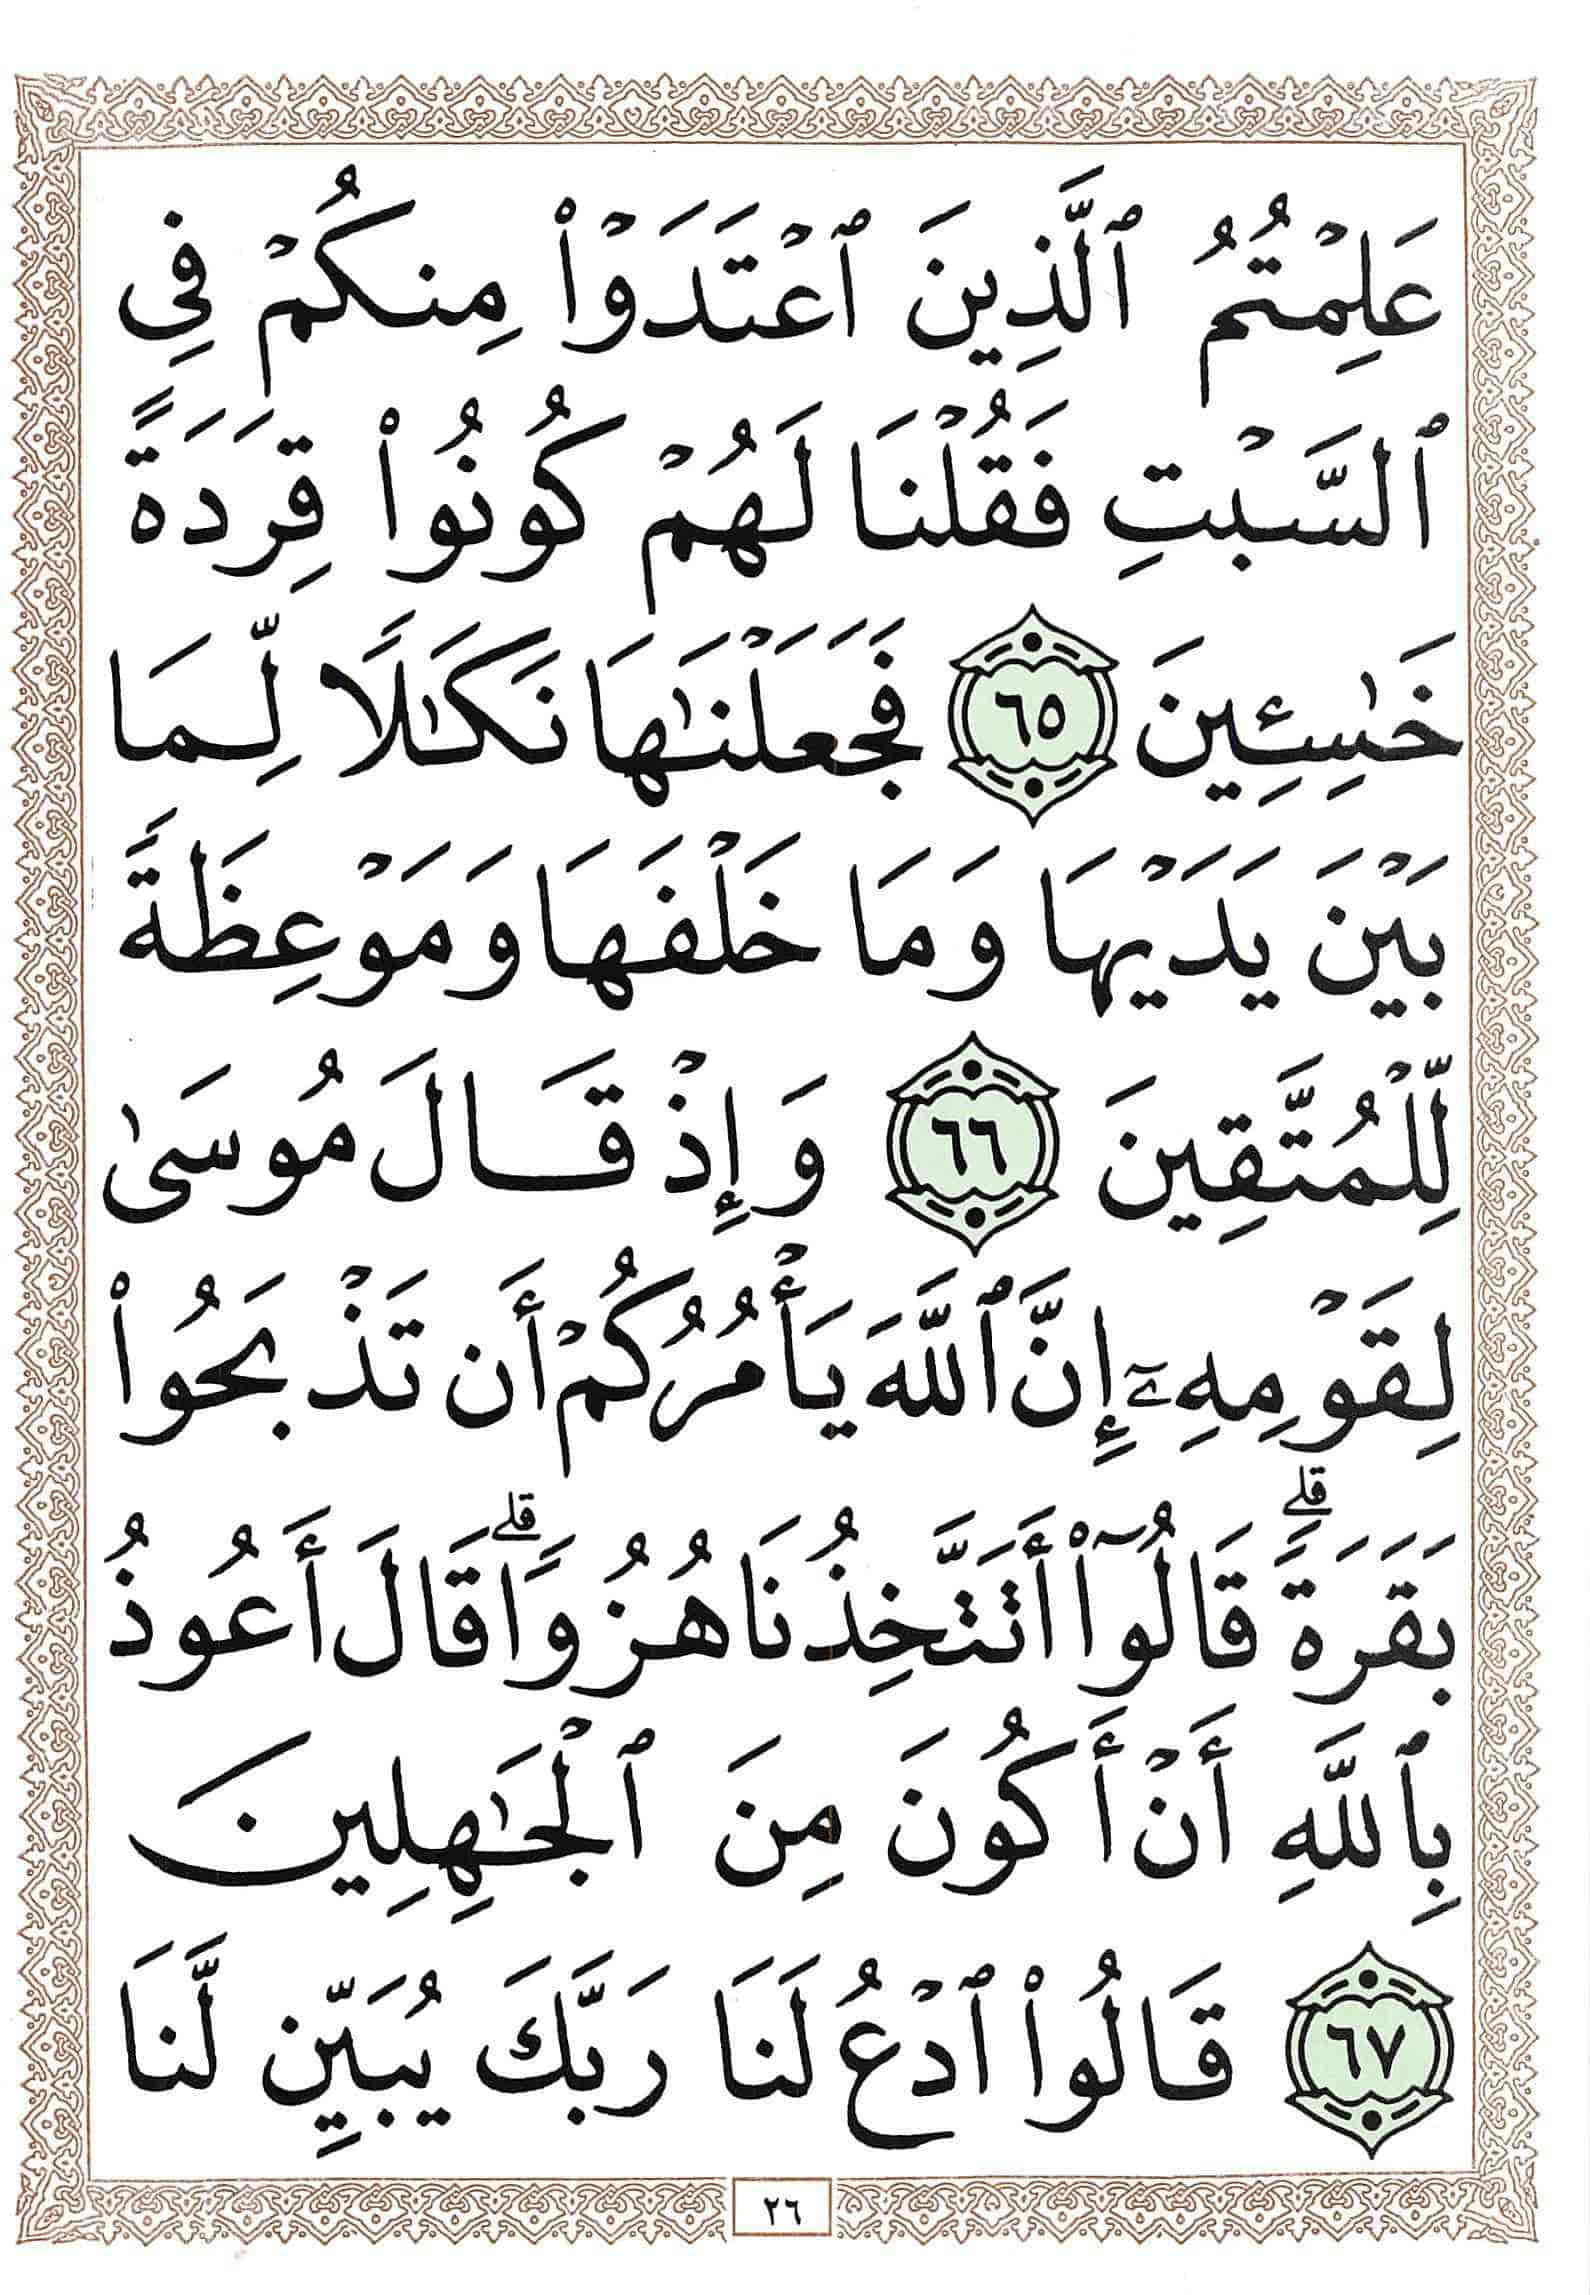 عَلِمْتُمُ ٱلَّذِينَ ٱعْتَدَوْا۟ مِنكُمْ فِى
ٱلسَّبْتِ فَقُلْنَا لَهُمْ كُونُوا۟ قِرَدَةً
خَـٰسِـِٔينَ ٦٥ فَجَعَلْنَـٰهَا نَكَـٰلًا لِّمَا
بَيْنَ يَدَيْهَا وَمَا خَلْفَهَا وَمَوْعِظَةً
لِّلْمُتَّقِينَ ٦٦ وَإِذْ قَالَ مُوسَىٰ
لِقَوْمِهِۦٓ إِنَّ ٱللَّهَ يَأْمُرُكُمْ أَن تَذْبَحُوا۟
بَقَرَةً ۖ قَالُوٓا۟ أَتَتَّخِذُنَا هُزُوًا ۖ قَالَ أَعُوذُ
بِٱللَّهِ أَنْ أَكُونَ مِنَ ٱلْجَـٰهِلِينَ
٦٧ قَالُوا۟ ٱدْعُ لَنَا رَبَّكَ يُبَيِّن لَّنَا
٢٦